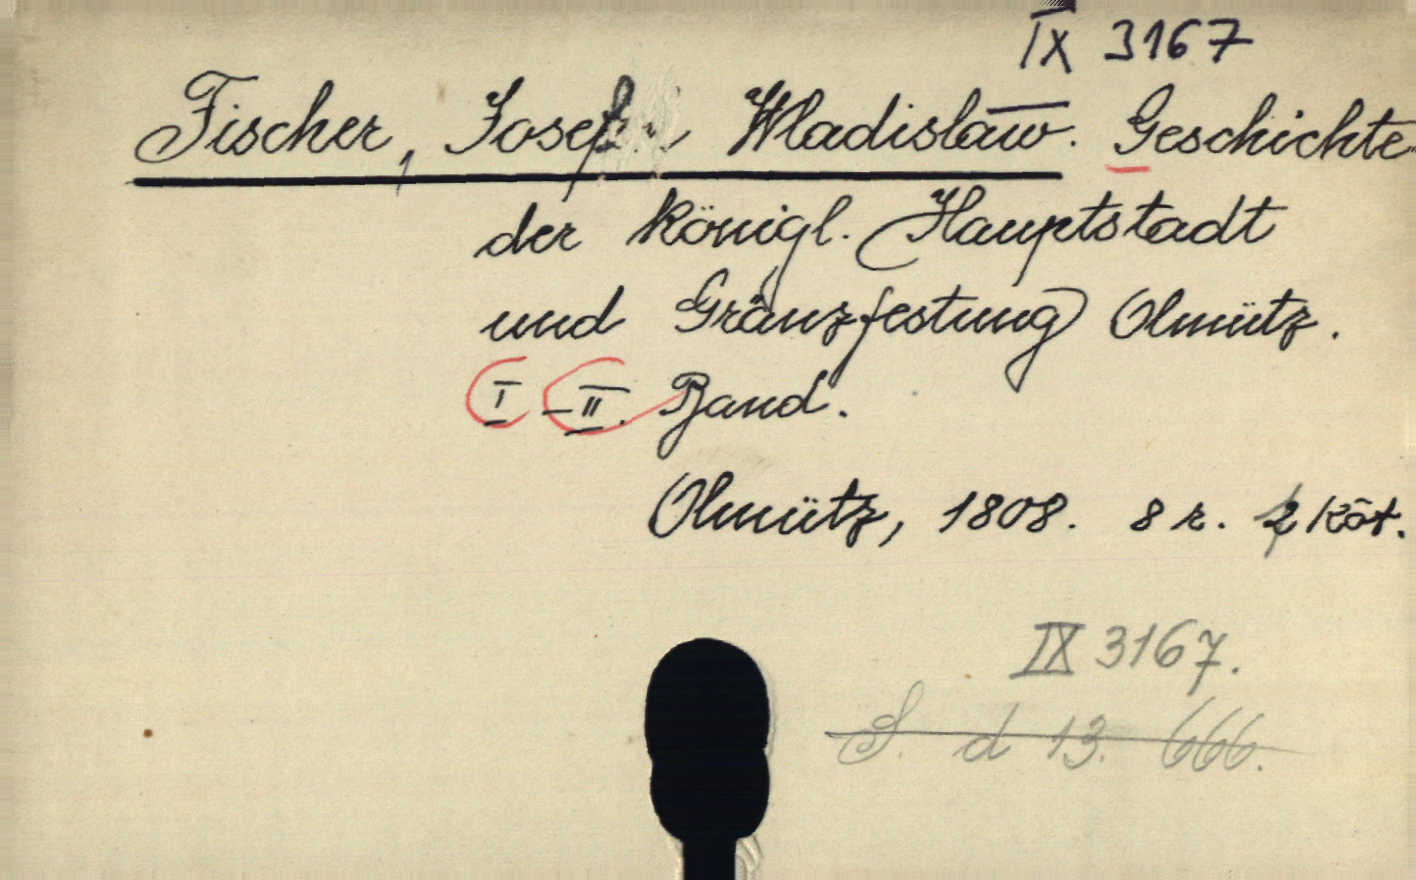 IX 3167
Fischer, Josef Wladislaw. Geschichte
der königl. Hauptstadt
und Gränzfestung Olmütz.
I–II. Band.
Olmütz, 1808. 8 r. 2 köt.
IX 3167.
S. d 13. 666.